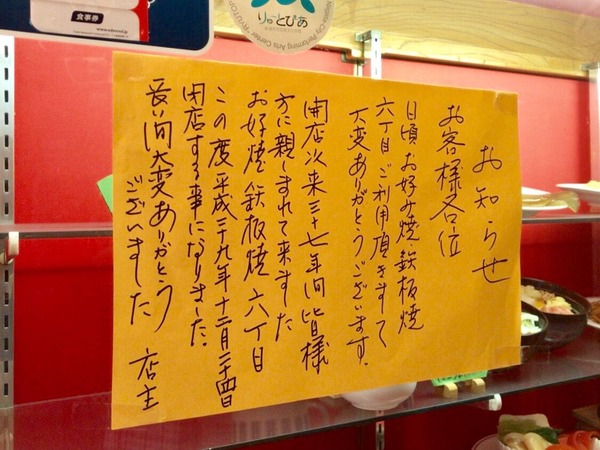 お知らせ
お客様各位
日頃お好み焼・鉄板焼
六丁目ご利用頂きまして
大変ありがとうございます。
開店以来三十七年間皆様
方に親しまれて来ました
お好焼・鉄板焼六丁目
この度平成二十九年十二月二十四日
閉店する事になりました。
長い間大変ありがとう
ございました
店主
りゅーとぴあ
お食事券